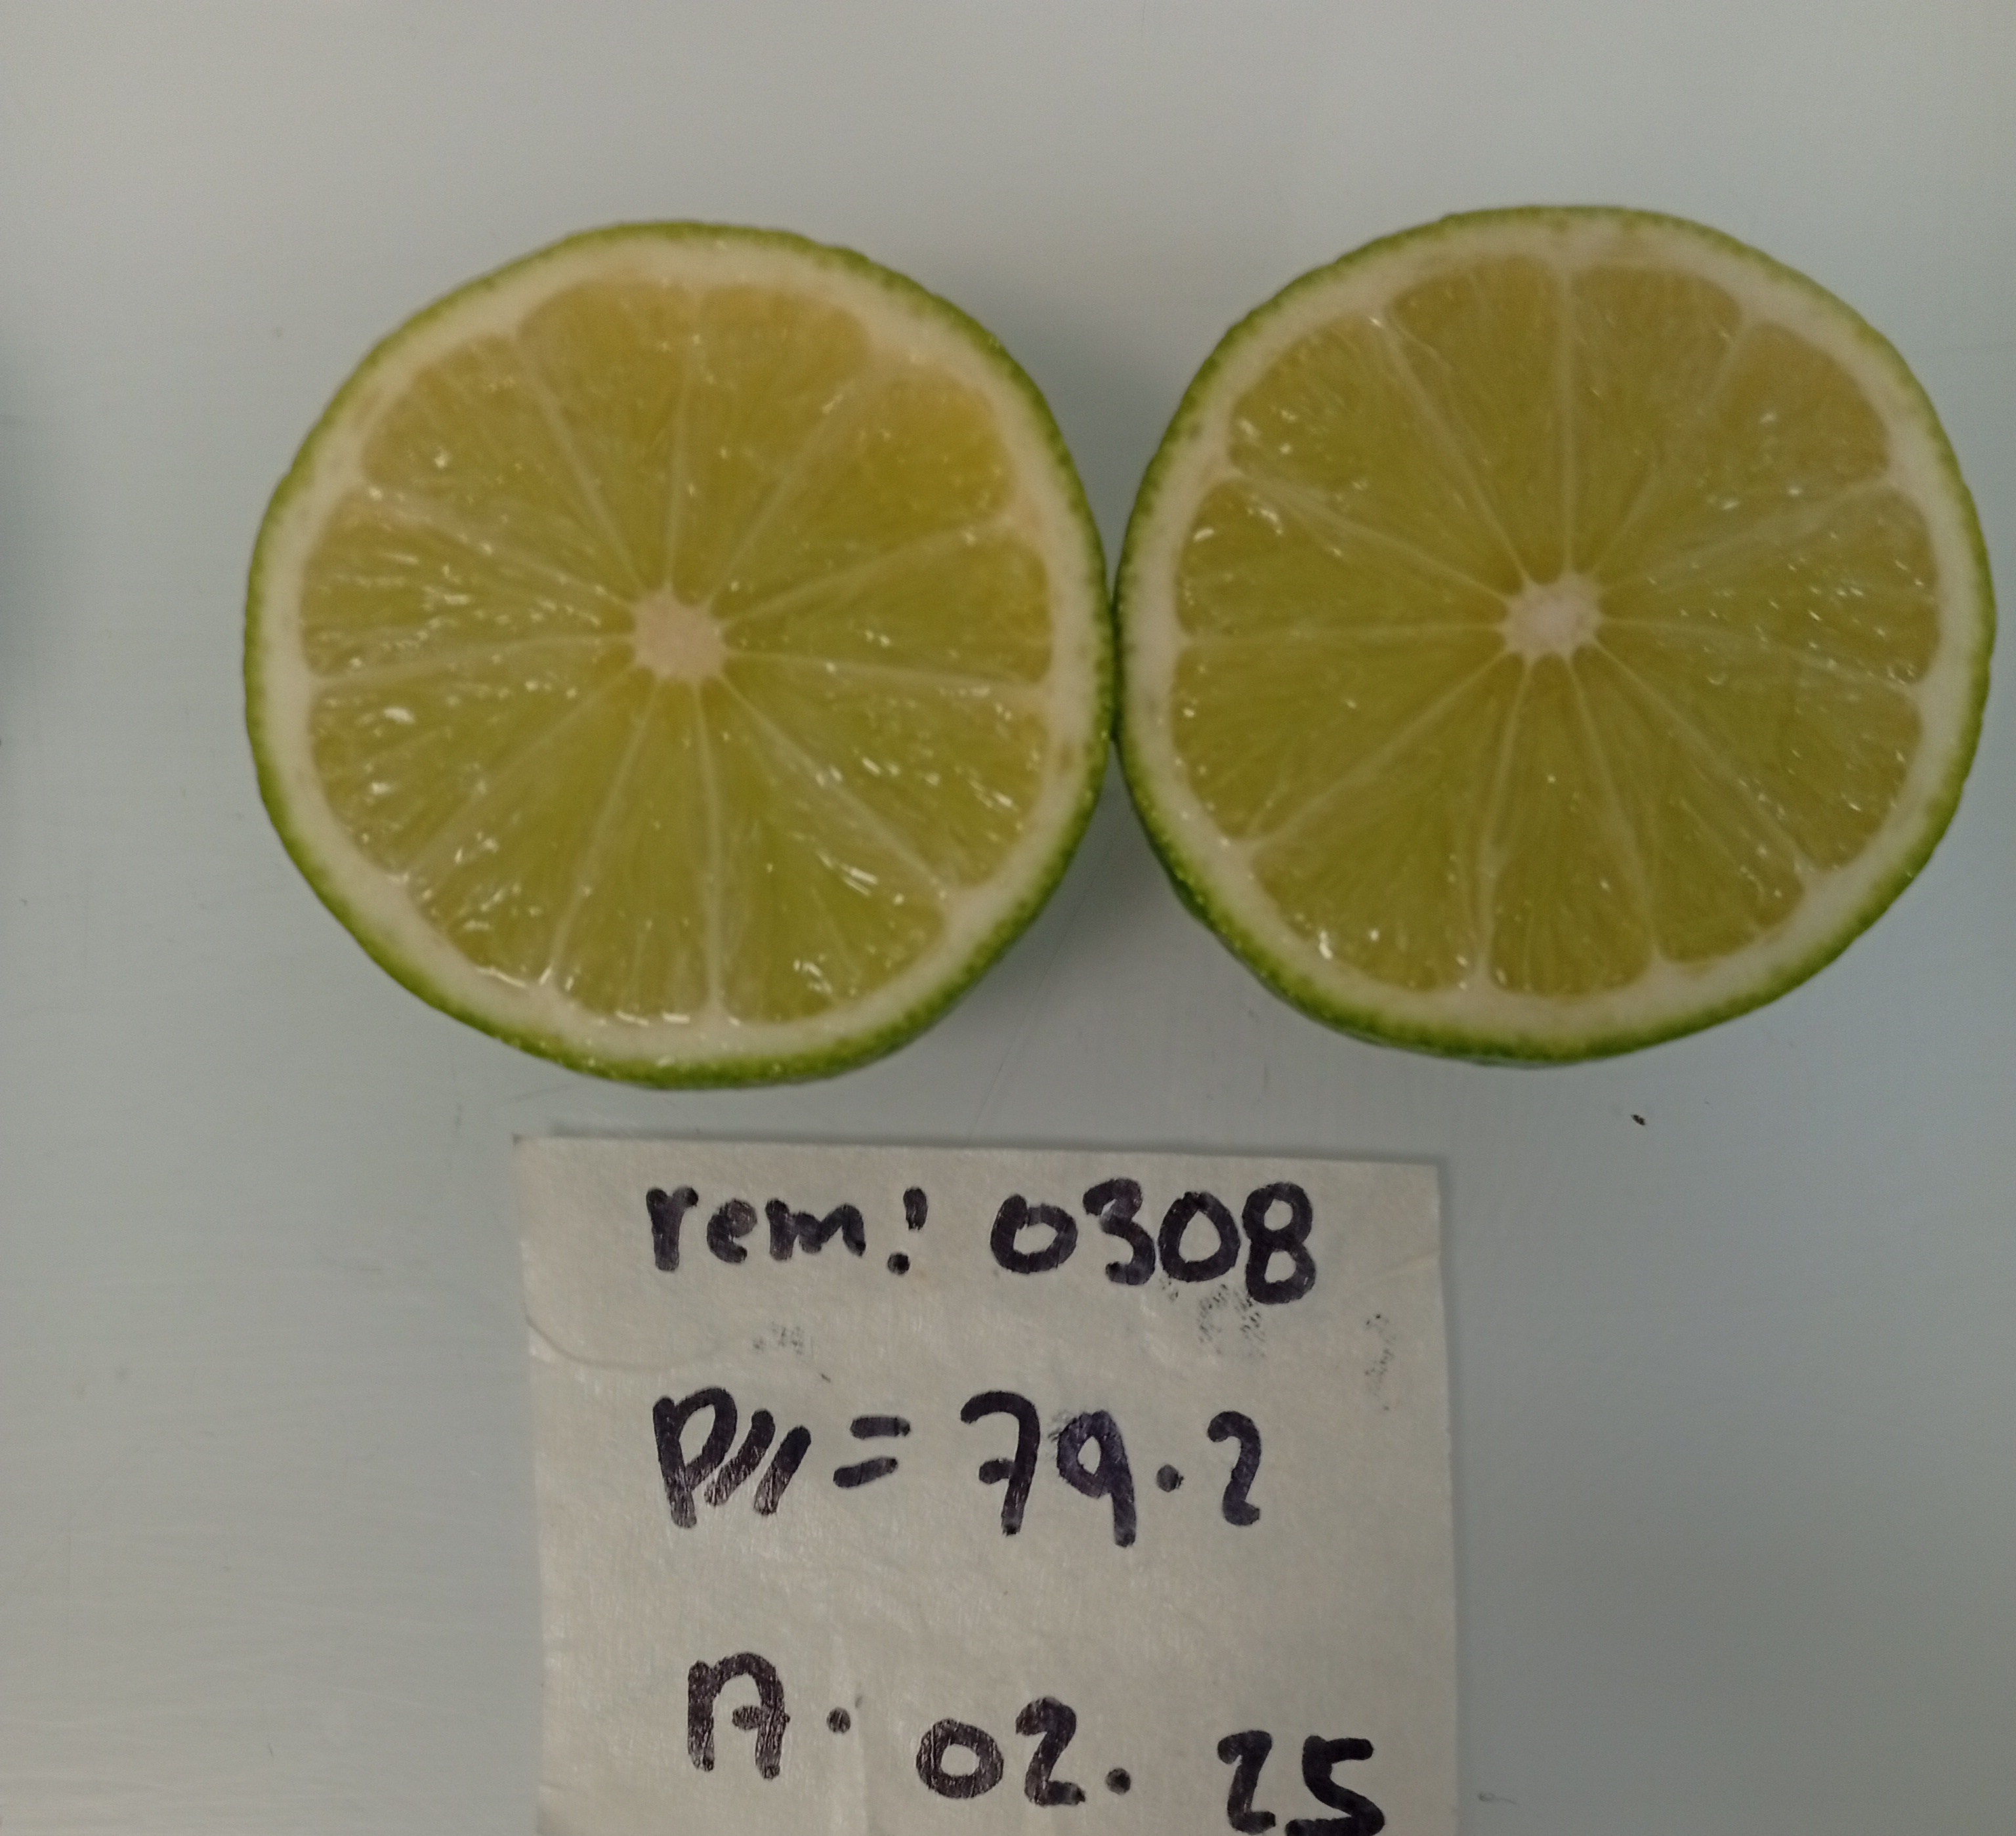 rem: 0308
P/// = 79.2
A. 02. 25